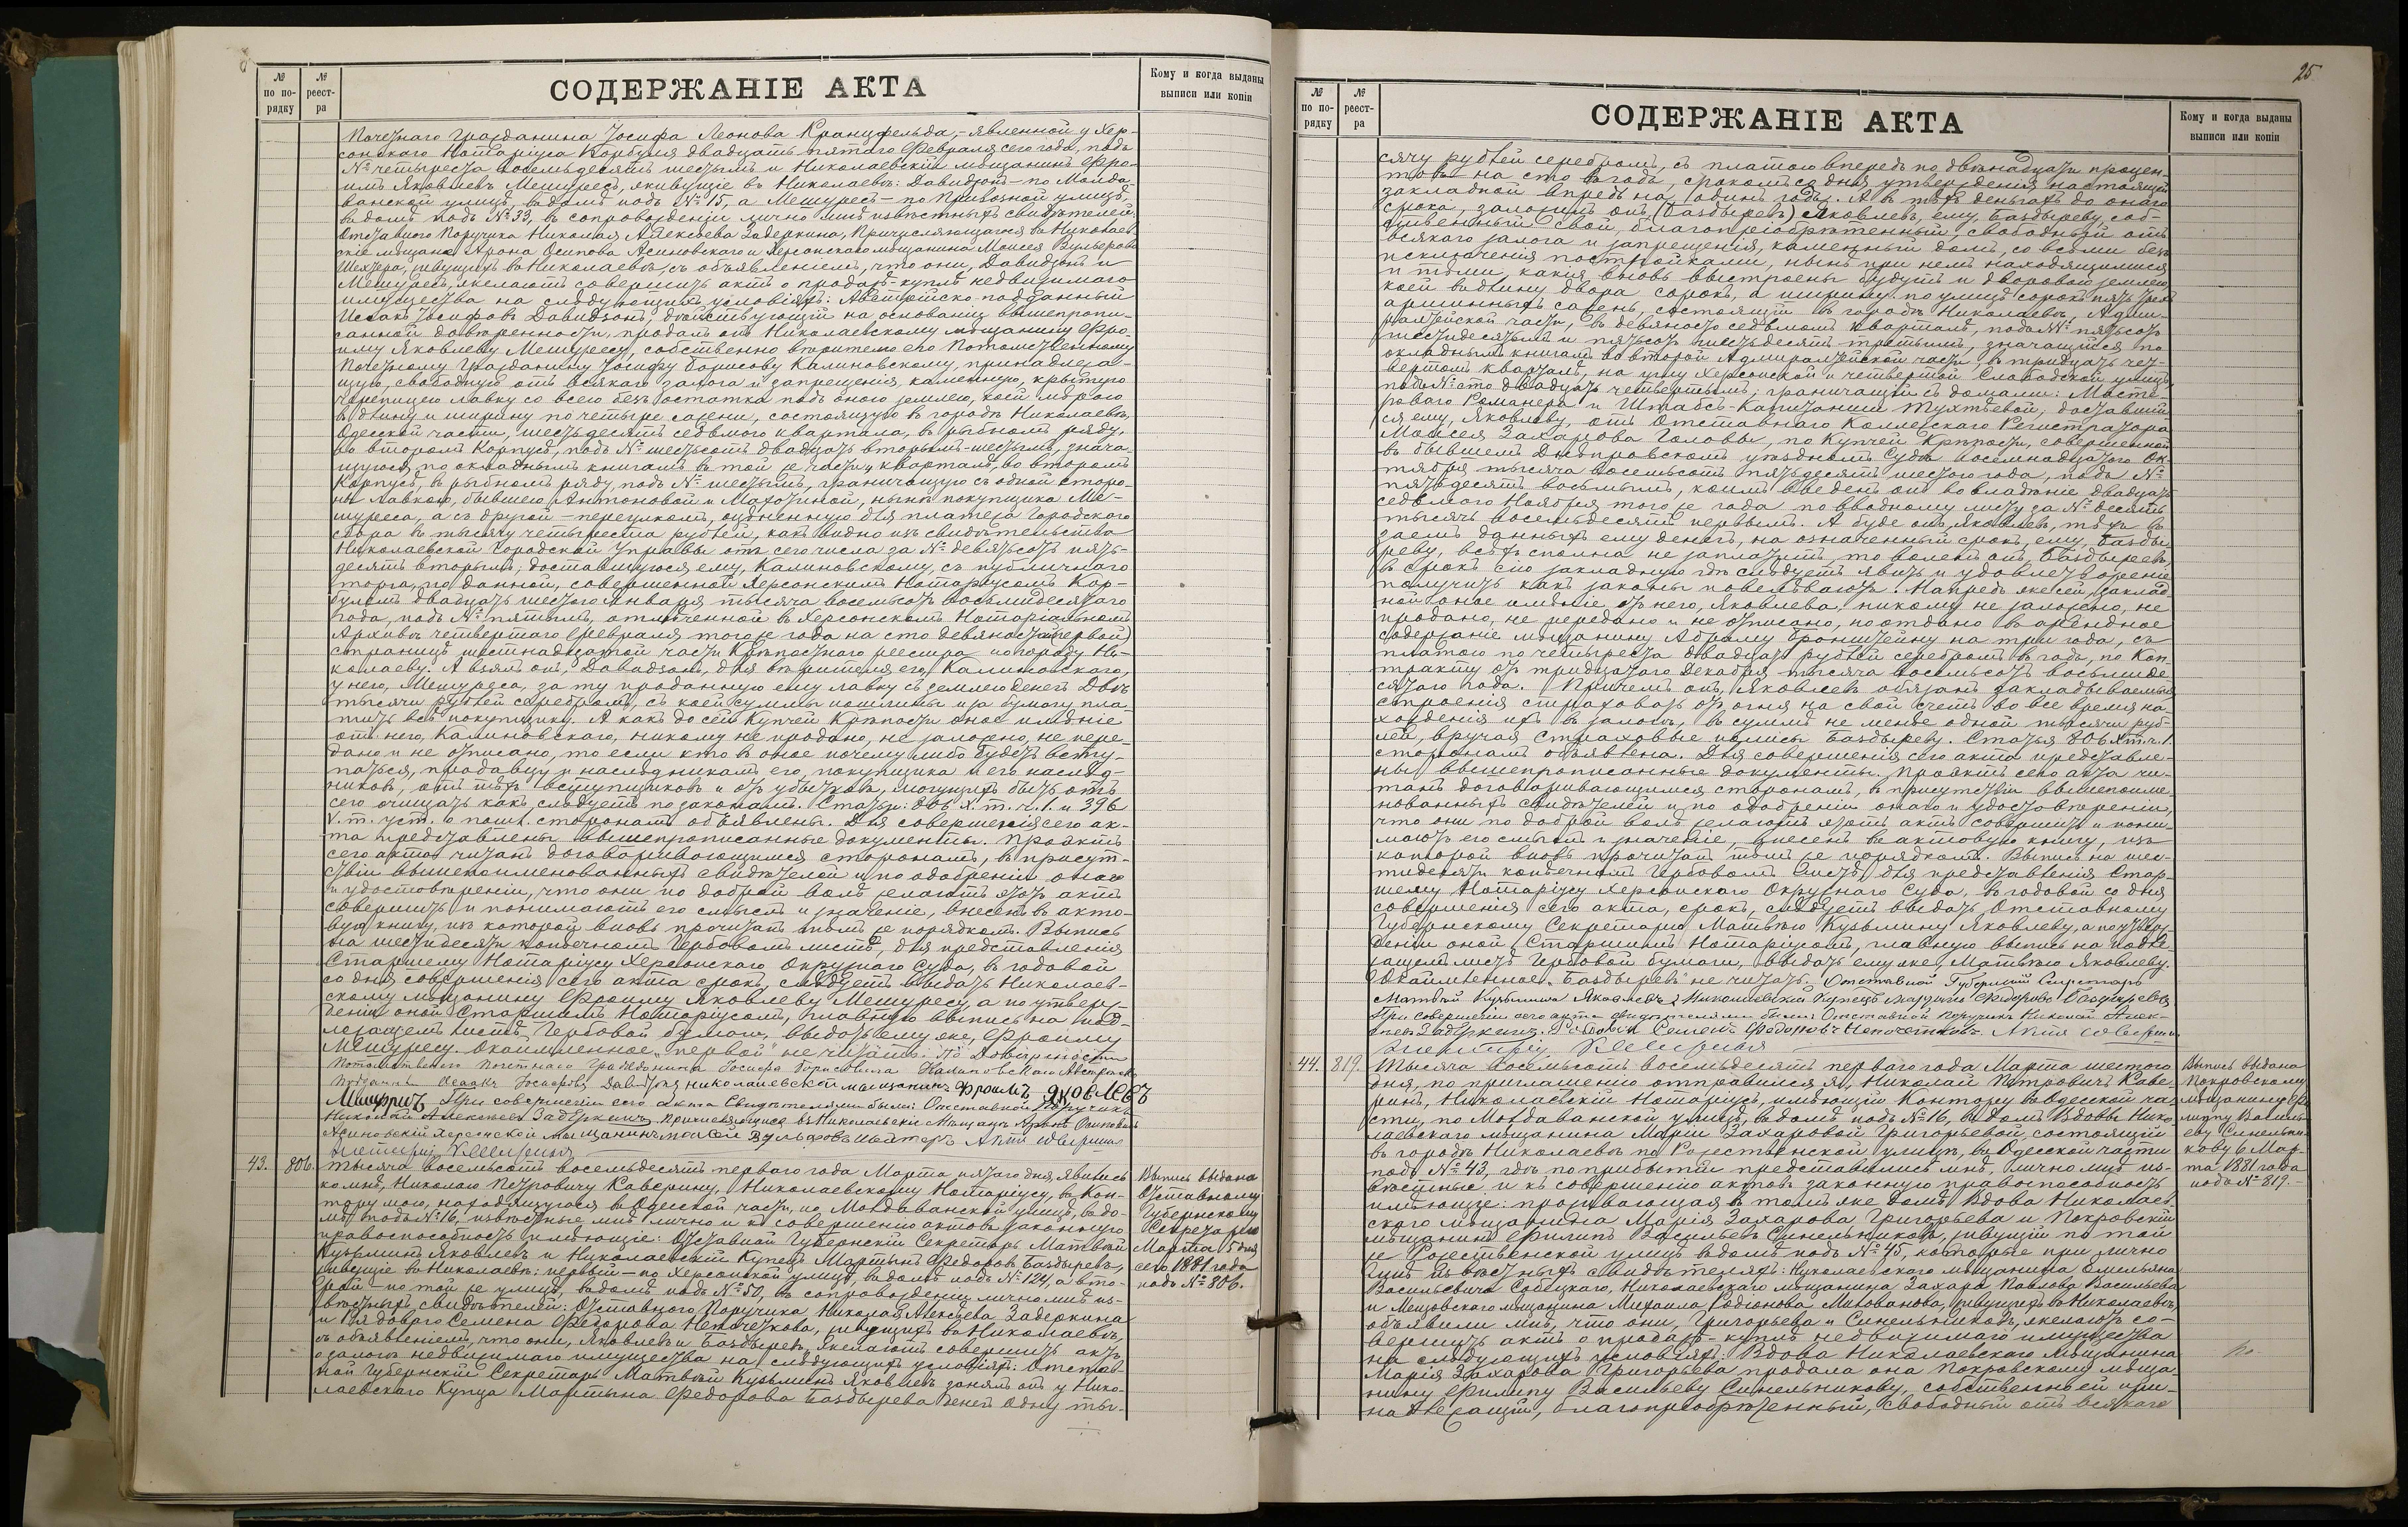 № по по-рядку
№ реест-ра
СОДЕРЖАНІЕ АКТА
Кому и когда выданы выписи или копіи
Почетнаго Гражданина Іосифа Леонова Кранцфельда,- явленной у Хер-
сонскаго Нотаріуса Корбуля двадцать пятаго Февраля сего года, подъ
№ четыреста восемьдесятъ шестымъ и Николаевскій мѣщанинъ Фро-
имъ Яковлевъ Мешуресъ, живущіе въ Николаевѣ: Давидзонъ - по Молда-
ванской улицѣ, въ домѣ подъ № 15, а Мешуресъ - по Привозной улицѣ,
въ домѣ подъ № 33, въ сопровожденіи лично мнѣ извѣстныхъ свидѣтелей:
Отставнаго Поручика Николая Алексѣева Задеркина, Причисляющагося въ Николаев-
скіе мѣщане Арона Осипова Асиновскаго и Херсонскаго мѣщанина Моисея Вульфова
Шехтера, живущихъ въ Николаевѣ, съ объявленіемъ, что они, Давидзонъ и
Мешуресъ, желаютъ совершить актъ о продажѣ-куплѣ недвижимаго
имущества на слѣдующихъ условіяхъ: Австрійско-подданный
Исаакъ Іосифовъ Давидзонъ, дѣйствующій на основаніи вышепропи-
санной довѣренности, продалъ онъ Николаевскому мѣщанину Фро-
иму Яковлеву Мешуресу, собственно вѣрителю его Потомственному
Почетному Гражданину Іосифу Борисову Калиновскому, принадлежа-
щую, свободную отъ всякаго залога и запрещенія, каменную, крытую
черепицею лавку со всею безъ остатка подъ оною землею, коей мѣрою
въ длину и ширину по четыре сажени, состоящую въ городѣ Николаевѣ,
Одесской части, шестьдесятъ седьмого квартала, въ рыбномъ ряду,
во второмъ Корпусѣ, подъ № шестьсотъ двадцать вторымъ-шестымъ, знача-
щуюся по окладнымъ книгамъ въ той же части и кварталѣ, во второмъ
Корпусѣ, въ рыбномъ ряду, подъ № шестымъ, граничащую съ одной сторо-
ны лавкою, бывшею Антоновой и Махотиной, нынѣ покупщика Ме-
шуреса, а съ другой - переулкомъ, оцѣненную для платежа Городскаго
сбора въ тысячу четыреста рублей, какъ видно изъ свидѣтельства
Николаевской Городской Управы отъ сего числа за № девятьсотъ пять-
десятъ вторымъ; доставшуюся ему, Калиновскому, съ публичнаго
торга, по данной, совершенной Херсонскимъ Нотаріусомъ Кор-
булемъ двадцать шестого Января тысяча восемьсотъ восьмидесятаго
года, подъ № пятымъ, отмѣченной въ Херсонскомъ Нотаріальномъ
Архивѣ четвертаго Февраля того же года на сто девяносто (первой)
страницѣ шестнадцатой части Крѣпостнаго реестра по городу Ни-
колаеву. А взялъ онъ, Давидзонъ, для вѣрителя его, Калиновскаго,
у него, Мешуреса, за ту проданную ему лавку съ землею денегъ Двѣ
тысячи рублей серебромъ, съ коей суммы пошлины и за бумагу пла-
тить всѣ покупщику. А какъ до сей Купчей Крѣпости оное имѣніе
отъ него, Калиновскаго, никому не продано, не заложено, не пере-
дано и не отписано, то если кто въ оное почему либо будетъ всту-
паться, продавцу и наслѣдникамъ его, покупщика и его наслѣд-
никовъ, отъ тѣхъ вступщиковъ и отъ убытковъ, могущихъ быть отъ
сего очищать какъ слѣдуетъ по законамъ. Статьи: 806 X. т. ч. 1. и 396
V. т. уст. о пошл. сторонамъ объявлены. Для совершенія сего ак-
та представлены вышепрописанные документы. Проэктъ
сего акта читанъ договаривающимся сторонамъ, въ присут-
ствіи вышепоименованныхъ свидѣтелей и по одобреніи онаго
и удостовѣреніи, что они по доброй волѣ желаютъ этотъ актъ
совершить и понимаютъ его смыслъ и значеніе, внесенъ въ акто-
вую книгу, изъ которой вновь прочитанъ тѣмъ же порядкомъ. Выпись
на шестидесяти копѣечномъ Гербовомъ листѣ, для представленія
Старшему Нотаріусу Херсонскаго Окружнаго Суда, въ годовой
со дня совершенія сего акта срокъ, слѣдуетъ выдать Николаев-
скому мѣщанину Фроиму Яковлеву Мешуресу, а по утверж-
деніи оной Старшимъ Нотаріусомъ, главную выпись на под-
лежащемъ листѣ Гербовой бумаги, выдать ему же, Фроиму
Мешуресу. Окаймленное „первой" не читать. По Довѣренности
Потомственнаго Почетнаго Гражданина Іосифа Борисовича Калиновскаго Австрійско
Подданный Исаакъ Іосифовъ Давидзонъ николаевской мещанинъ Фроимъ Яковлевъ
Мешурисъ При совершеніи сего акта Свидѣтелями были: Отставной Поручикъ
Николай Алексѣевъ Задеркинъ Причисляющійся въ Николаевскіе Мѣщане Аронъ Осиповъ
Асиновскій Херсонской мѣщанинъ Мосей Вульфовъ Шехтеръ Актъ совершилъ
Нотаріусъ Каверинъ
43.
806.
Тысяча восемьсотъ восемьдесятъ перваго года Марта пятаго дня, явились
ко мнѣ, Николаю Петровичу Каверину, Николаевскому Нотаріусу, въ Кон-
тору мою, находящуюся въ Одесской части, по Молдаванской улицѣ, въ до-
мѣ подъ № 16, извѣстные мнѣ лично и къ совершенію актовъ законную
правоспособность имѣющіе: Отставной Губернскій Секретарь Матвѣй
Кузьминъ Яковлевъ и Николаевскій Купецъ Мартынъ Федоровъ Баздыревъ,
живущіе въ Николаевѣ: первый - по Херсонской улицѣ, въ домѣ подъ № 124, а вто-
рой - по той же улицѣ, въ домѣ подъ № 50, въ сопровожденіи лично мнѣ из-
вѣстныхъ свидѣтелей: Отставнаго Поручика Николая Алексѣева Задеркина
и Рядоваго Семена Федорова Непочеткова, живущихъ въ Николаевѣ,
съ объявленіемъ, что они, Яковлевъ и Баздыревъ, желаютъ совершить актъ
о залогѣ недвижимаго имущества на слѣдующихъ условіяхъ: Отстав-
ной Губернскій Секретарь Матвѣй Кузьминъ Яковлевъ занялъ онъ у Нико-
лаевскаго Купца Мартына Федорова Баздырева денегъ одну ты-
Выпись выдана
Отставному
Губернскому
Секретарю
Марта 5 дня
сего 1881 года
подъ № 806.
25
№ по по-рядку
№ реест-ра
СОДЕРЖАНІЕ АКТА
Кому и когда выданы выписи или копіи
сячу рублей серебромъ, съ платою впередъ по двѣнадцати процен-
товъ на сто въ годъ, срокомъ со дня утвержденія настоящей
закладной впредь на одинъ годъ. А въ тѣхъ деньгахъ до онаго
срока, заложилъ онъ, (Баздыревъ) Яковлевъ, ему, Баздыреву, соб-
ственный свой, благопріобрѣтенный, свободный отъ
всякаго залога и запрещенія, каменный домъ, со всѣми безъ
исключенія постройками, нынѣ при немъ находящимися
и тѣми, какія вновь выстроены будутъ и дворовою землею,
коей въ длину двора сорокъ, а ширину по улицѣ сорокъ пять трех
аршинныхъ сажень, состоящій въ городѣ Николаевѣ, Адми-
ралтейской части, въ девяносто седьмомъ кварталѣ, подъ №№ пятьсотъ
шестьдесятымъ и пятьсотъ шестьдесятъ третьимъ, значащійся по
окладнымъ книгамъ во второй Адмиралтейской части въ тридцать чет-
вертомъ кварталѣ, на углу Херсонской и четвертой Слободской улицъ,
подъ № сто двадцать четвертымъ, граничащій съ домами: Масте-
роваго Романера и Штабсъ-Капитанши Тухтѣевой, доставшій
ся ему, Яковлеву, отъ Отставнаго Коллежскаго Регистратора
Моисея Захарова Головы, по Купчей Крѣпости, совершенной
въ бывшемъ Днѣпровскомъ уѣздномъ Судѣ восемнадцатаго Ок-
тября тысяча восемьсотъ пятьдесятъ шестого года, подъ №
пятьдесятъ восьмымъ, коимъ введенъ онъ во владѣніе двадцать
седьмого Ноября того же года по вводному листу за № десять
тысячъ восемьдесятъ первымъ. А буде онъ, Яковлевъ, тѣхъ въ
заемъ данныхъ ему денегъ, на означенный срокъ, ему, Базды-
реву, всѣхъ сполна не заплатитъ, то воленъ онъ, Баздыревъ,
въ срокъ сію закладную гдѣ слѣдуетъ явить и удовлетвореніе
получить какъ законы повелѣваютъ. Напредь же сей заклад-
ной оное имѣніе отъ него, Яковлева, никому не заложено, не
продано, не передано и не отписано, но отдано въ арендное
содержаніе мѣщанину Абраму Бронштейну на три года, съ
платою по четыреста двадцать рублей серебромъ въ годъ, по Кон-
тракту отъ тридцатаго Декабря тысяча восемьсотъ восьмиде-
сятаго года. Причемъ онъ, Яковлевъ обязанъ закладываемыя
строенія страховать отъ огня на свой счетъ во все время на-
хожденія ихъ въ залогѣ, въ суммѣ не менѣе одной тысячи руб-
лей, вручая страховые полисы Баздыреву. Статья 806 X т. ч. 1.
сторонамъ объявлена. Для совершенія сего акта представле-
ны вышепрописанные документы. Проэктъ сего акта чи-
танъ договаривающимся сторонамъ, въ присутствіи вышепоиме-
нованныхъ свидѣтелей и по одобреніи онаго и удостовѣреніи,
что они по доброй волѣ желаютъ этотъ актъ совершить и пони-
маютъ его смыслъ и значеніе, внесенъ въ актовую книгу, изъ
которой вновь прочитанъ тѣмъ же порядкомъ. Выпись на шес-
тидесяти копѣечномъ Гербовомъ листѣ, для представленія Стар-
шему Нотаріусу Херсонскаго Окружнаго Суда, въ годовой со дня
совершенія сего акта, срокъ, слѣдуетъ выдать Отставному
Губернскому Секретарю Матвѣю Кузьмину Яковлеву, а по утверж-
деніи оной Старшимъ Нотаріусомъ, главную выпись на подле-
жащемъ листѣ Гербовой бумаги, выдать ему же, Матвѣю Яковлеву.
Окаймленное „Баздыревъ" не читать. Отставной Губернскій Секретарь
Матвѣй Кузьминъ Яковлевъ, Николаевскій Купецъ Мартынъ Федоровъ Баздыревъ
При совершеніи сего акта свидѣтелями были: Отставной Поручикъ Николай Алек-
сѣевъ Задеркинъ. Рядовой Семенъ Федоровъ Непочетковъ. Актъ совершилъ
Нотаріусъ Каверинъ
44.
819.
Тысяча восемьсотъ восемьдесятъ перваго года Марта шестого
дня, по приглашенію отправился я, Николай Петровичъ Каве-
ринъ, Николаевскій Нотаріусъ, имѣющій Контору въ Одесской ча-
сти, по Молдаванской улицѣ, въ домѣ подъ № 16, въ домъ Вдовы Нико-
лаевскаго мѣщанина Маріи Захаровой Григорьевой, состоящій
въ городѣ Николаевѣ по Рождественской улицѣ, въ Одесской части
подъ № 43, гдѣ по прибытіи представились мнѣ, лично мнѣ из-
вѣстные и къ совершенію актовъ законную правоспособность
имѣющіе: проживающая въ томъ же домѣ Вдова Николаев-
скаго мѣщанина Марія Захарова Григорьева и Покровскій
мѣщанинъ Филипъ Васильевъ Синельниковъ, живущій по той
же Рождественской улицѣ въ домѣ подъ № 45, которые при лично
мнѣ извѣстныхъ свидѣтеляхъ: Николаевскаго мѣщанина Емельяна
Васильевича Собецкаго, Николаевскаго мѣщанина Захара Павлова Васильева
и Мещовскаго мѣщанина Михаила Родіонова Милованова, живущихъ въ Николаевѣ,
объявили мнѣ, что они, Григорьева и Синельниковъ, желаютъ со-
вершить актъ о продажѣ-куплѣ недвижимаго имущества
на слѣдующихъ условіяхъ: Вдова Николаевскаго мѣщанина
Марія Захарова Григорьева продала она Покровскому мѣща-
нину Филипу Васильеву Синельникову, собственный ей при-
надлежащій, благопріобрѣтенный, свободный отъ всякаго
Выпись выдана
Покровскому
мѣщанину Фи-
липпу Василь-
еву Синельни-
кову 6 Мар-
та 1881 года
подъ № 819.-